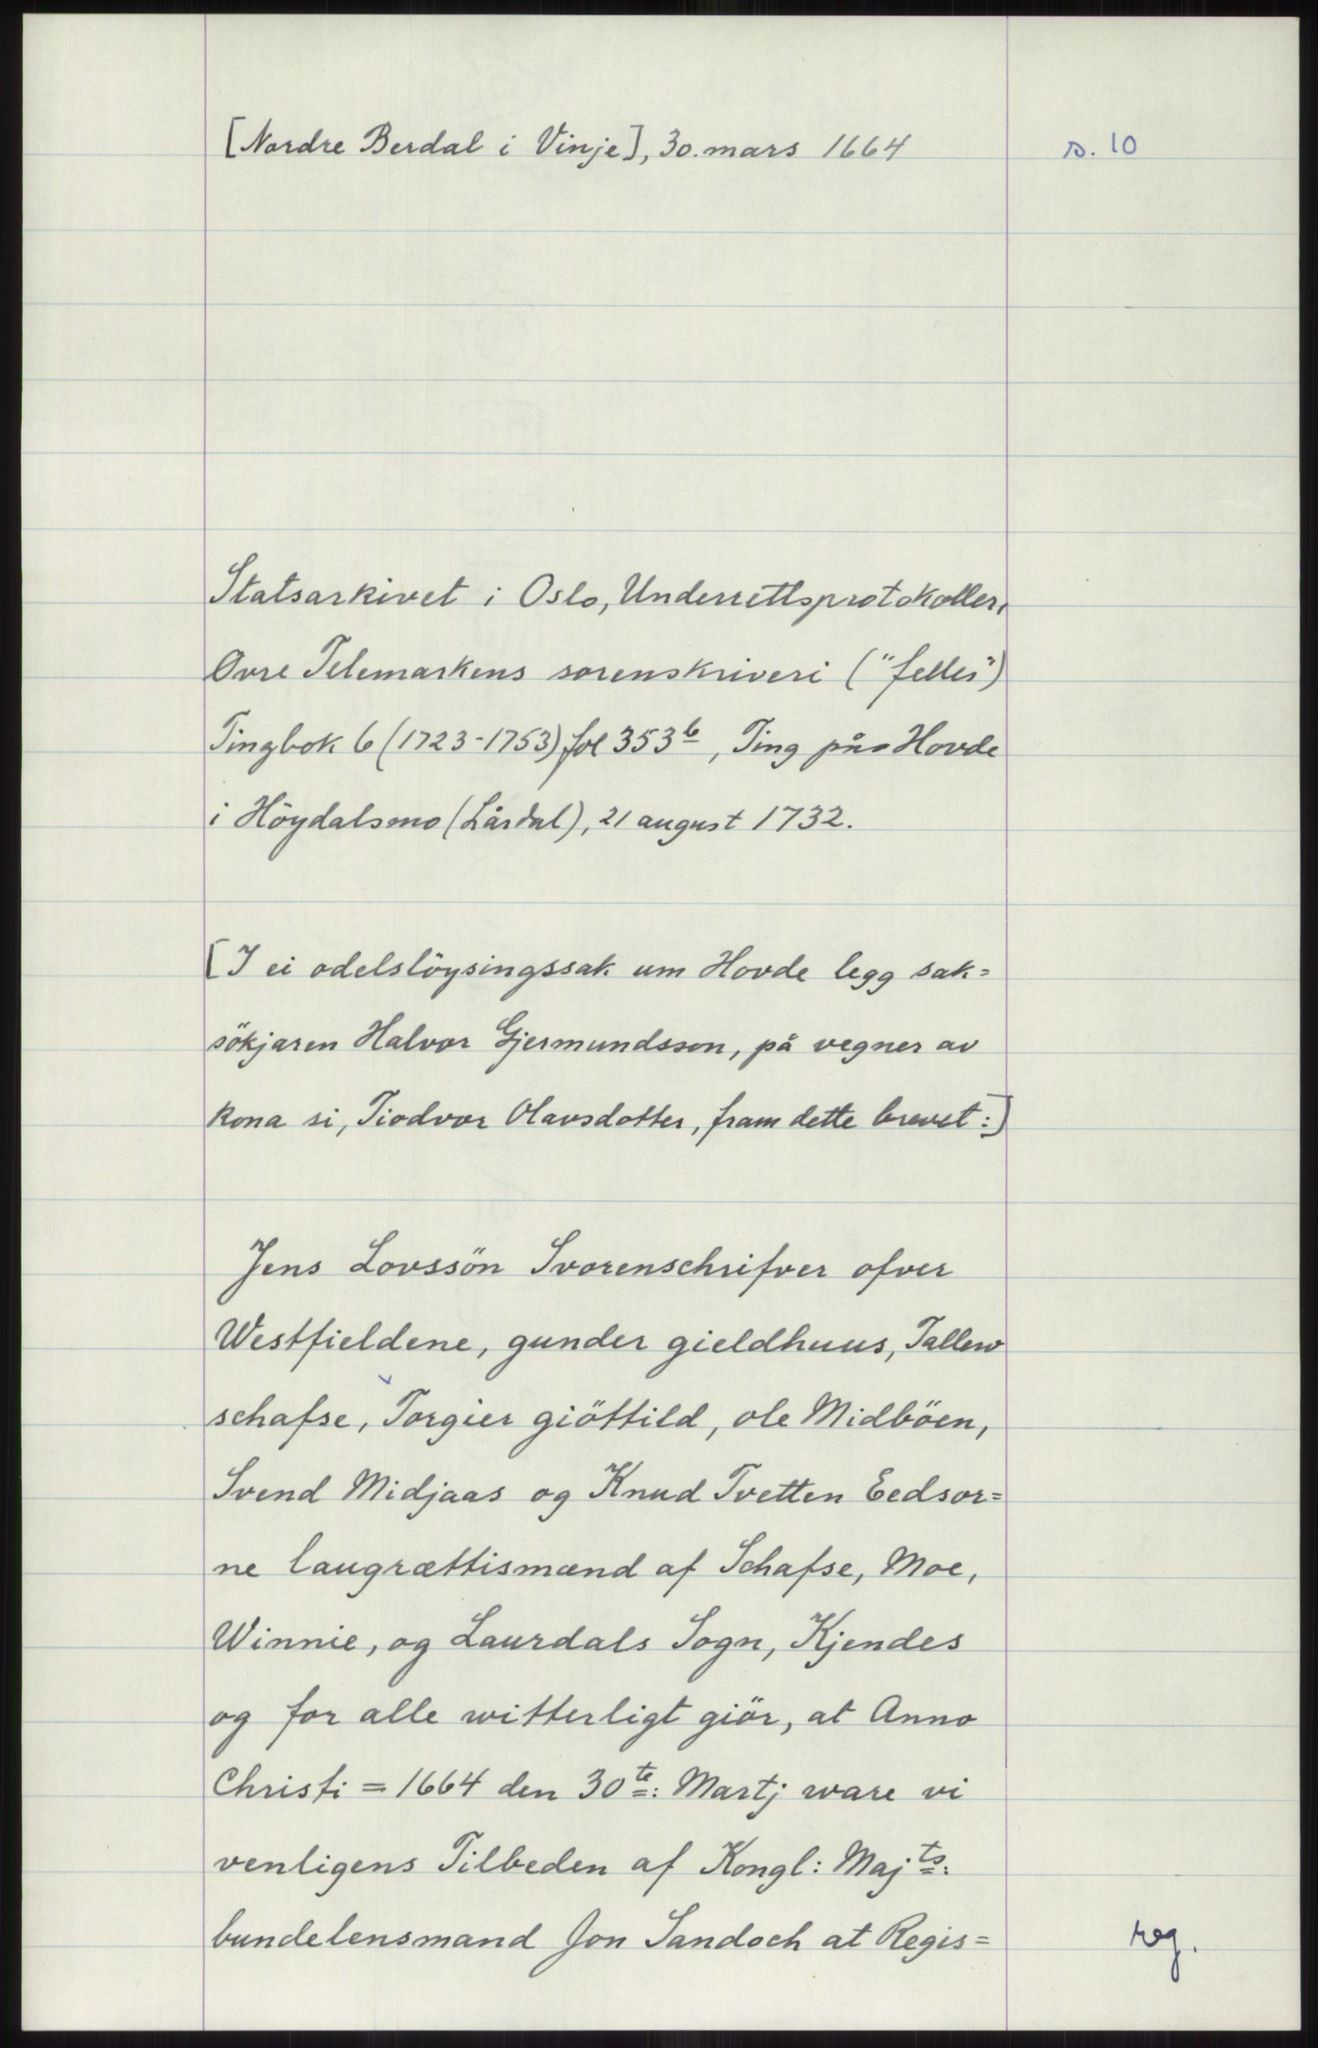 [Nordre Berdal i Vinje], 30. mars 1664
s. 10
Statsarkivet i Oslo, Underrettsprotokoller,
Øvre Telemarkens sorenskriveri ("felles")
Tingbok 6 (1723-1753) fol 353b, Ting på Hovde
i Höydalsmo (Lårdal), 21 august 1732.
[I ei odelslöysingssak um Hovde legg sak=
sökjaren Halvor Gjermundsson, på vegner av
kona si, Tiodvor Olavsdotter, fram dette brevet:]
Jens Lovssön Svorenschrifver ofver
Westfieldene, gunder gieldhuus, Tallew
schafse, Torgier giöttild, ole Midböen,
Svend Midjaas og Knud Tvetten Eedsor=
ne laugrættismænd af Schafse, Moe,
Winnie, og Laurdals Sogn, Kjendes
og for alle witterligt giör, at Anno
Christi = 1664 den 30te: Martj ware vi
venligens Tilbeden af Kongl: Majts:
bundelensmand Jon Sandoch at Regis=
reg.